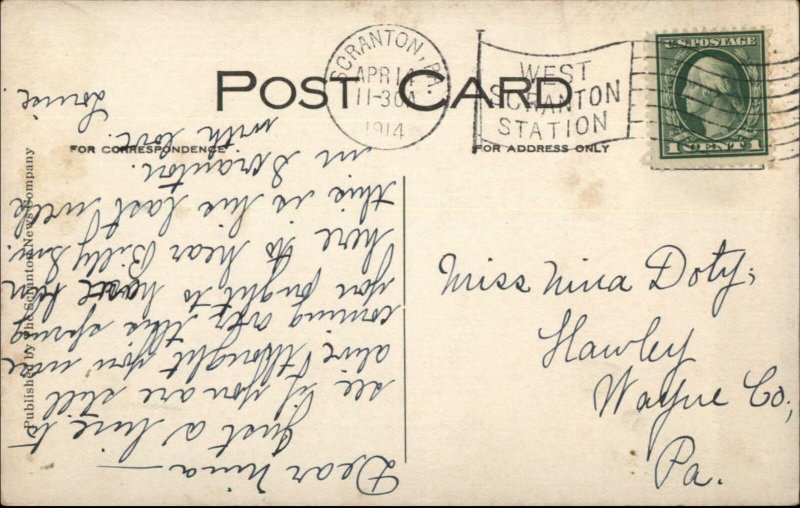 POST CARD
FOR CORRESPONDENCE
FOR ADDRESS ONLY
SCRANTON, PA.
APR 14
11-30A
1914
WEST
SCRANTON
STATION
U.S. POSTAGE
1 CENT 1
Published by The Scranton News Company
Miss Nina Doty,
Hawley
Wayne Co.,
Pa.
Dear Nina—
Just a line to
see if you are still
alive I thought you were
coming over this spring
you ought to have been
here to hear Billy Sun.
this is his last week
in Scranton.
with love.
Louise.